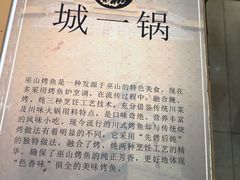 城一锅
巫山烤鱼是一种发源于巫山的特色美食，现在
多采用烤鱼炉烹调，在流传过程中，融合腌、
烤、炖三种烹饪工艺技术，充分借鉴传统川菜
及川味火锅用料特点，是口味奇绝、营养丰富
的风味小吃。现今流行的川式烤鱼却与传统烧
烤做法有着明显的不同，它采用“先烤后炖”
的独特做法，融合了烤、炖两种烹饪工艺的精
华，确保了巫山烤鱼的纯正芳香，更好地体现
“色香味”俱全的美味烤鱼。